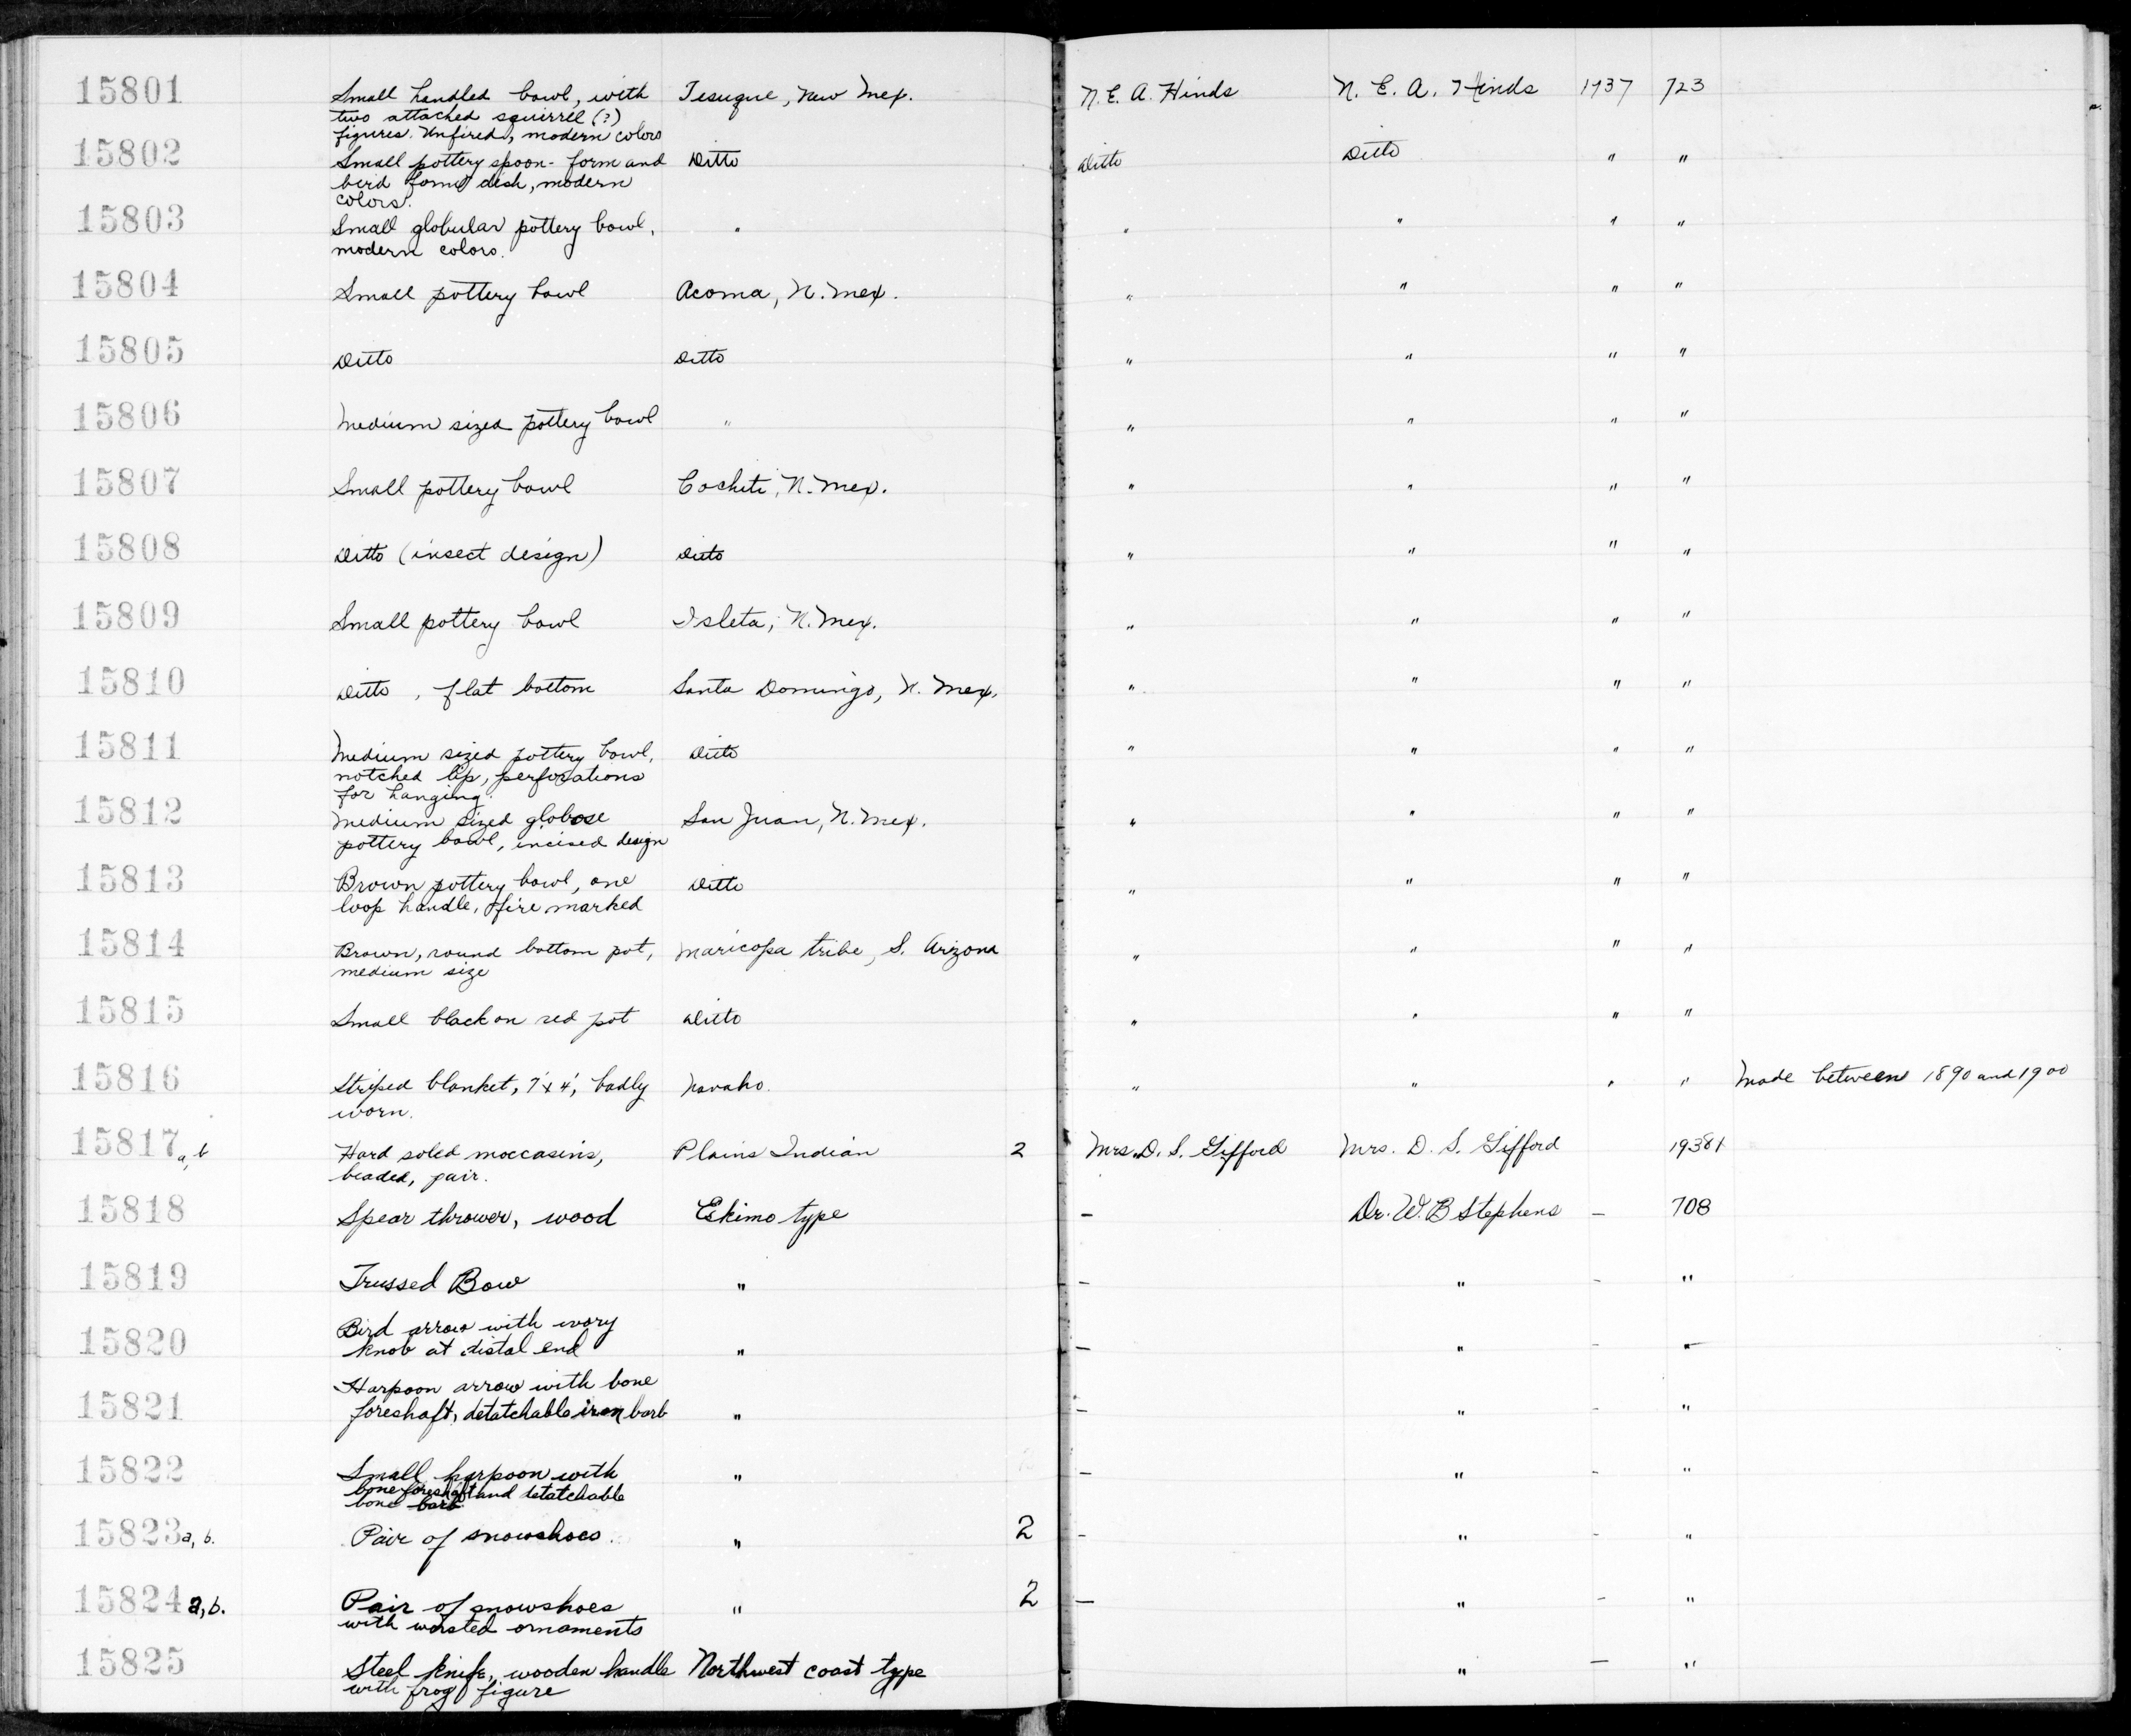 15801 Small handled bowl, with Tesuque, New Mex. N. E. A. Hinds N. E. A. Hinds 1937 723
two attached squirrel (?)
figures. Unfired, modern colors
15802 Small pottery spoon-form and Ditto Ditto Ditto " "
bird form dish, modern
colors.
15803 Small globular pottery bowl, " " " " "
modern colors.
15804 Small pottery bowl Acoma, N. Mex. " " " "
15805 Ditto Ditto " " " "
15806 Medium sized pottery bowl " " " " "
15807 Small pottery bowl Cochiti, N. Mex. " " " "
15808 Ditto (insect design) Ditto " " " "
15809 Small pottery bowl Isleta, N. Mex. " " " "
15810 Ditto, flat bottom Santa Domingo, N. Mex. " " " "
15811 Medium sized pottery bowl, Ditto " " " "
notched lip, perforations
for hanging.
15812 Medium sized globose San Juan, N. Mex. " " " "
pottery bowl, incised design
15813 Brown pottery bowl, one Ditto " " " "
loop handle, fire marked
15814 Brown, round bottom pot, Maricopa tribe, S. Arizona " " " "
medium size
15815 Small black on red pot Ditto " " " "
15816 Striped blanket, 7'x4', badly Navaho. " " " " Made between 1890 and 1900
worn.
15817 a, b Hard soled moccasins, Plains Indian 2 Mrs. D. S. Gifford Mrs. D. S. Gifford
beaded, pair.
15818 Spear thrower, wood Eskimo type – Dr. W. B Stephens – 708
15819 Trussed Bow " – " – "
15820 Bird arrow with ivory
knob at distal end " – " – "
15821 Harpoon arrow with bone
foreshaft, detatchable iron barb " – " – "
15822 Small harpoon with " – " – "
bone foreshaft and detatchable
bone barb
15823 a, b. Pair of snowshoes. " 2 – " – "
15824 a, b. Pair of snowshoes " 2 – " – "
with worsted ornaments
15825 Steel knife, wooden handle Northwest coast type " – "
with frog figure